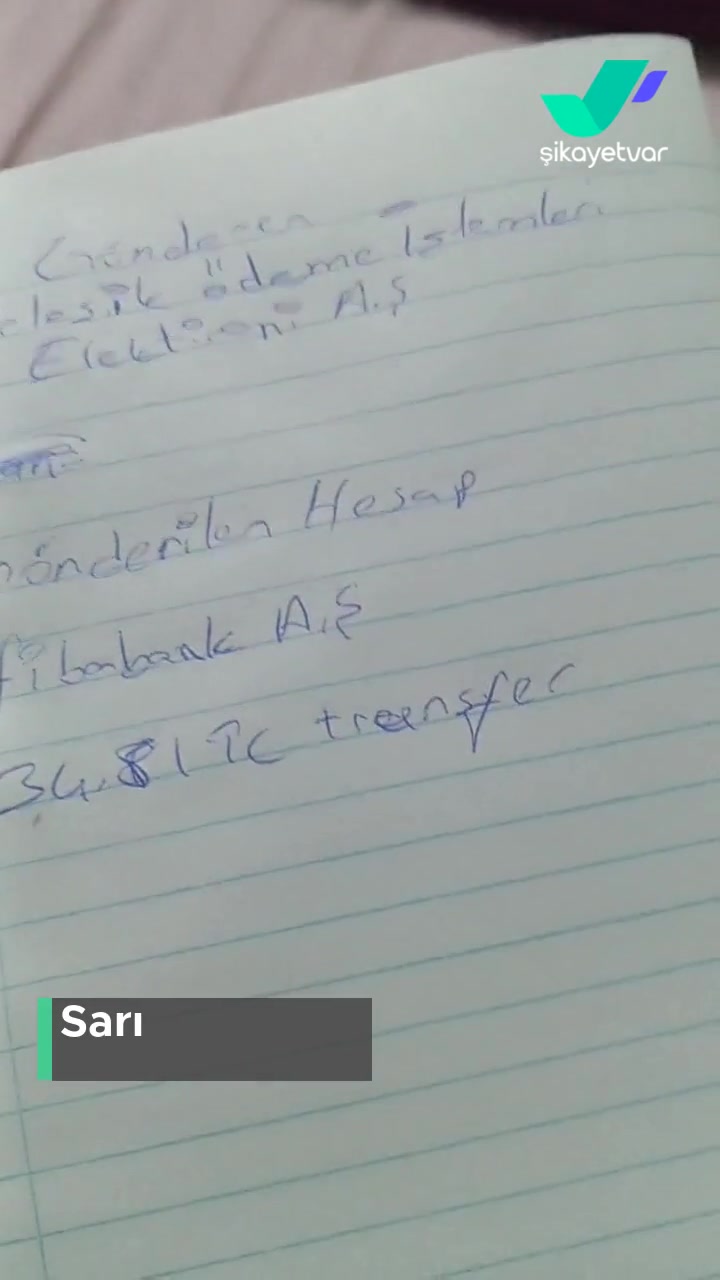 şikayetvar
Gönderen
ödeme İşlemleri
A.Ş
önderilen Hesap
fibabank A.Ş
34.81 TL transfer
Sarı